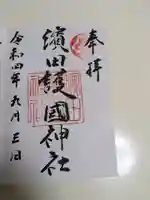 奉拝
濱田護國神社
令和四年九月三日